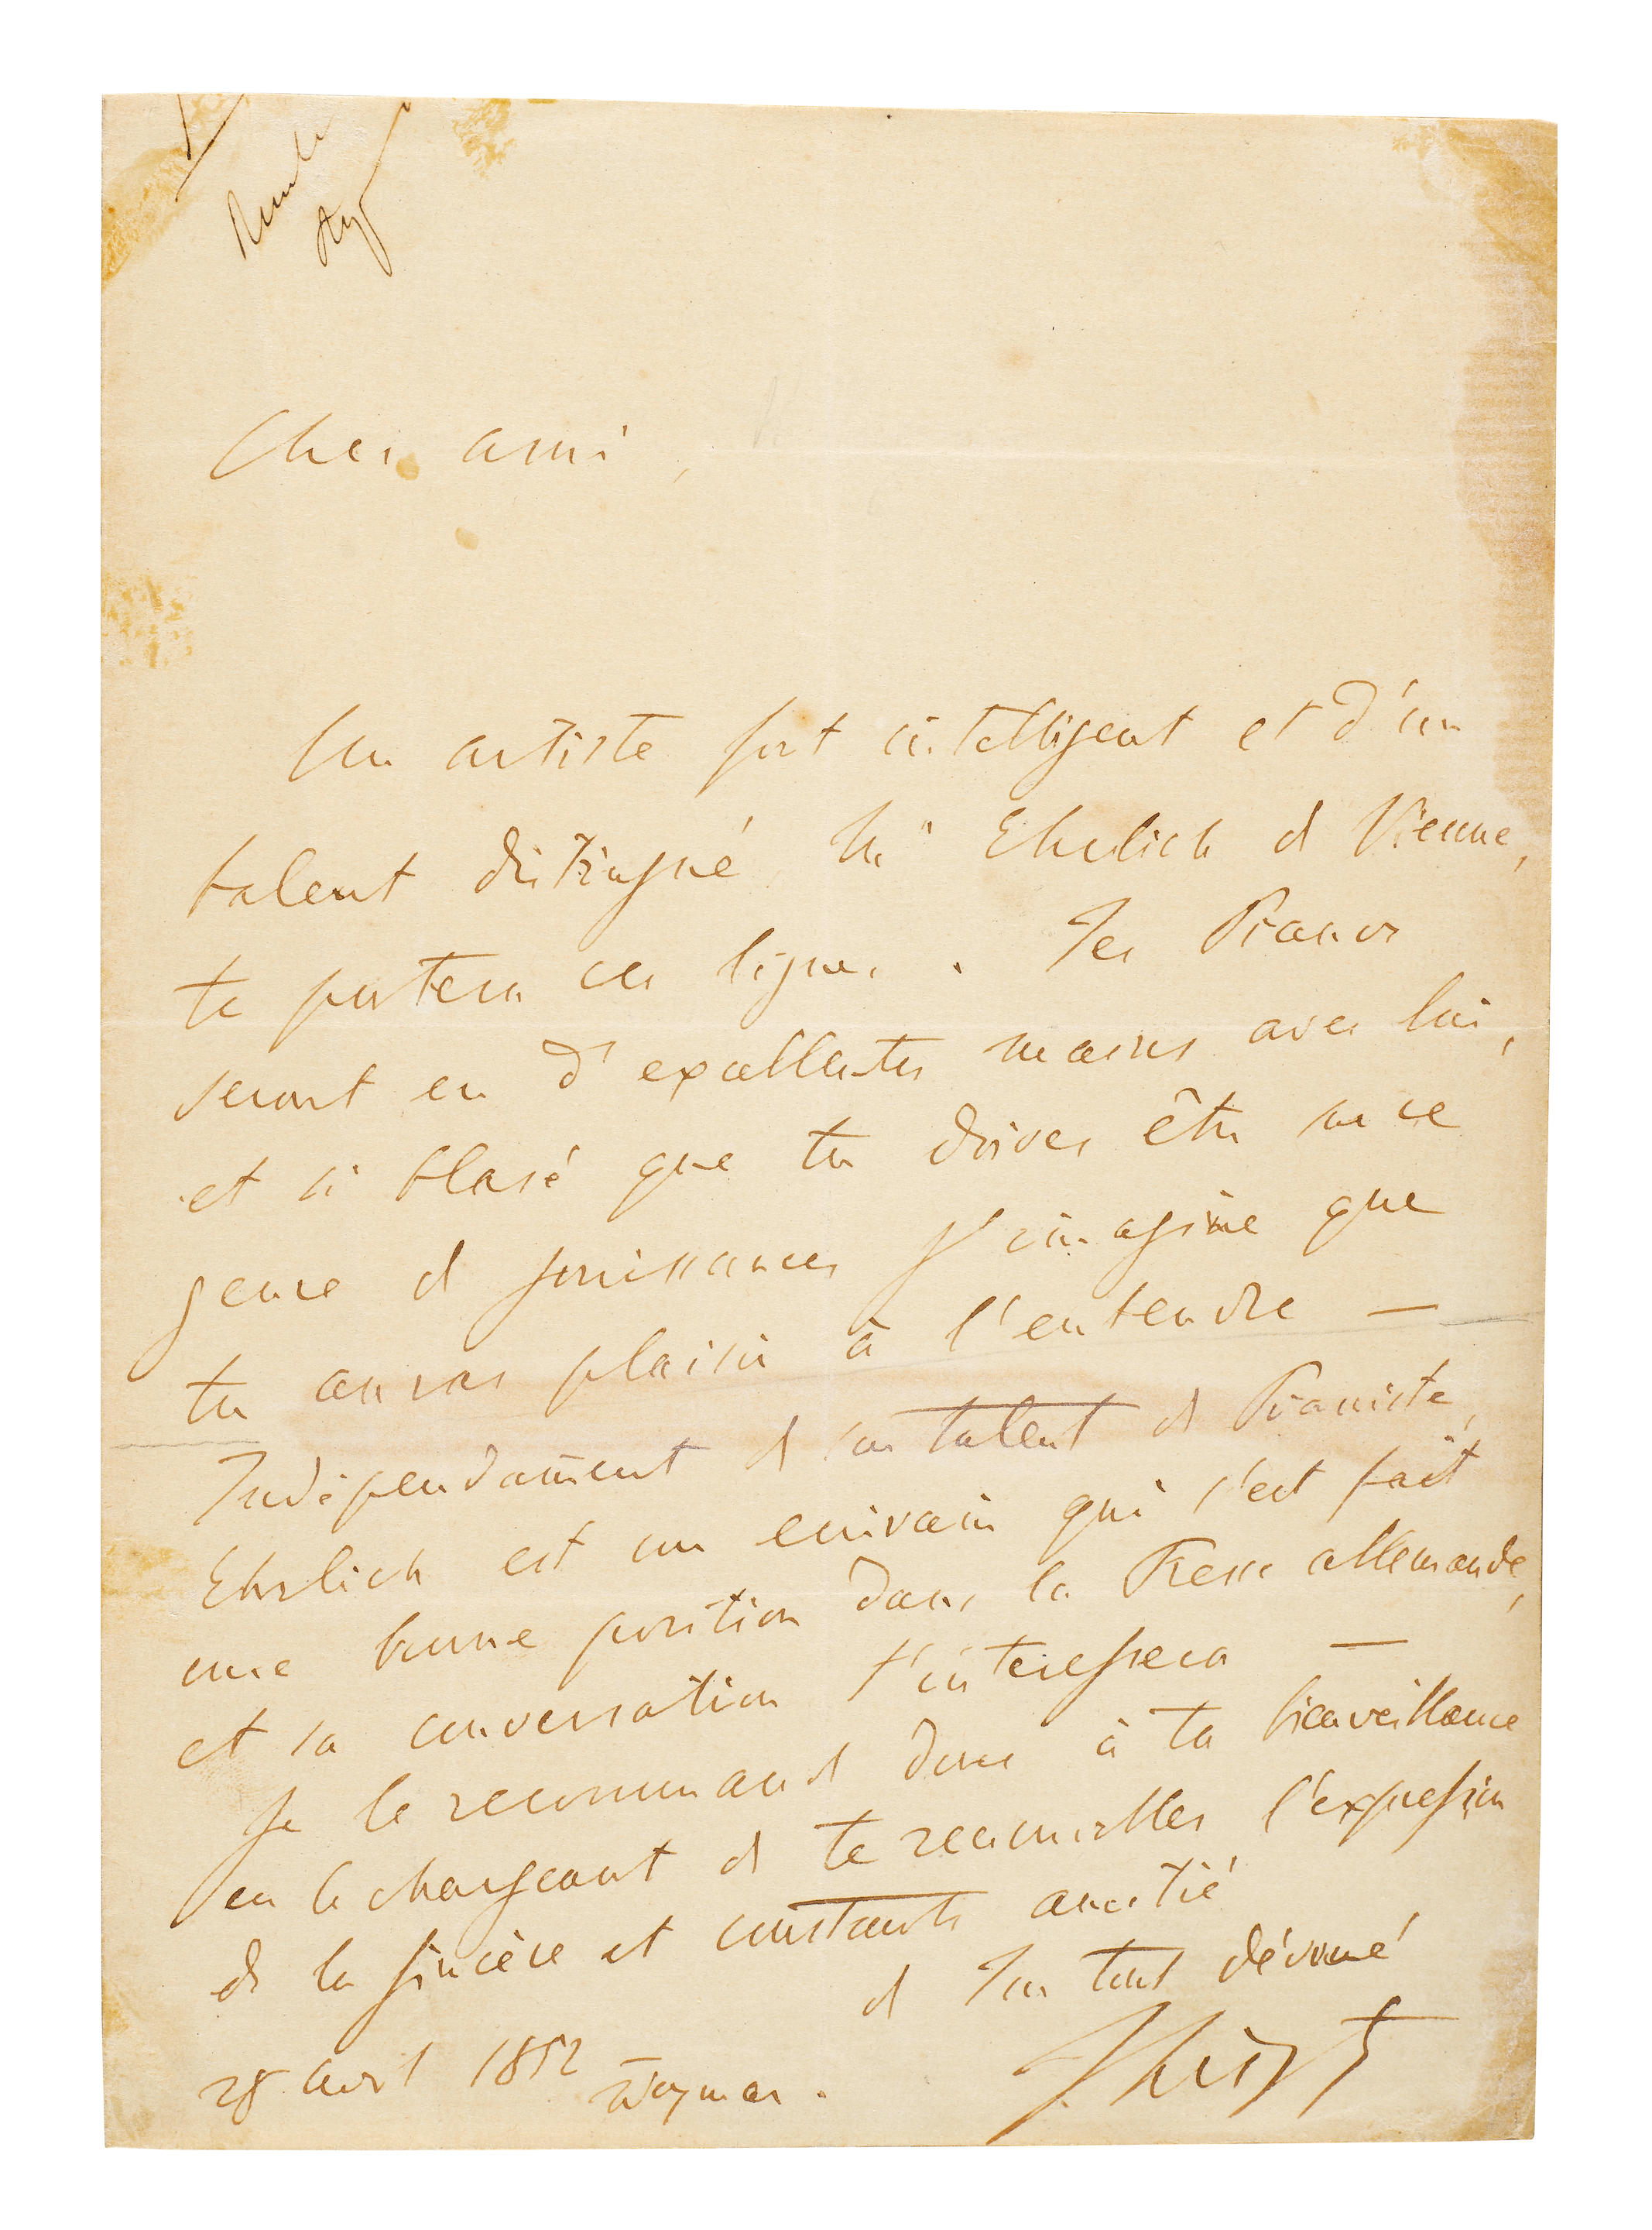 Cher ami,
Un artiste fort intelligent et d'un
talent distingué, Mr Ehrlich de Vienne,
te portera ces lignes. Tes Pianos
seront en d'excellentes mains avec lui,
et si blasé que tu doives être sur ce
genre de jouissances j'imagine que
tu auras plaisir à l'entendre —
Indépendamment de son talent de Pianiste,
Ehrlich est un ecrivain qui s'est fait
une bonne position dans la Presse allemande,
et sa conversation t'interessera —
Je le recommande donc à ta bienveillance
en le chargeant de te renouveller l'expression
de la sincère et constante amitié
de ton tout dévoué
F. Liszt
28 avril 1852 Weymar.